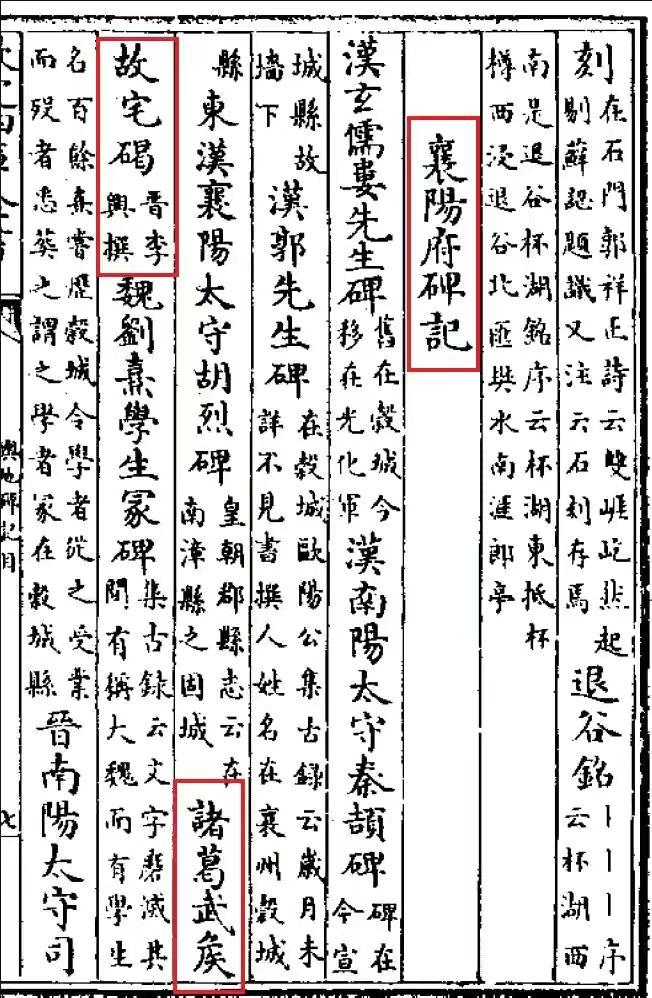 刻在石門郭祥正詩云雙崕屹然起剔蘚認題識又注云石刻存焉退谷銘丨丨丨序云杯湖西
南是退谷杯湖銘序云杯湖東抵杯樽西浸退谷北匯樊水南涯郎亭
襄陽府碑記
漢玄儒婁先生碑舊在穀城今移在光化軍漢南陽太守秦頡碑碑在今宣
城縣故墻下漢郭先生碑在穀城歐陽公集古録云歲月未詳不見書撰人姓名在襄州穀城
縣東漢襄陽太守胡烈碑皇朝郡縣志云在南漳縣之固城諸葛武矦
故宅碣晋李興撰魏劉熹學生冢碑集古録云文字磨滅其間有稱大魏而有學生
名百餘熹嘗歴穀城令學者從之受業而殁者悉葬之謂之學者冢在穀城縣晉南陽太守司
輿地碑記目
七